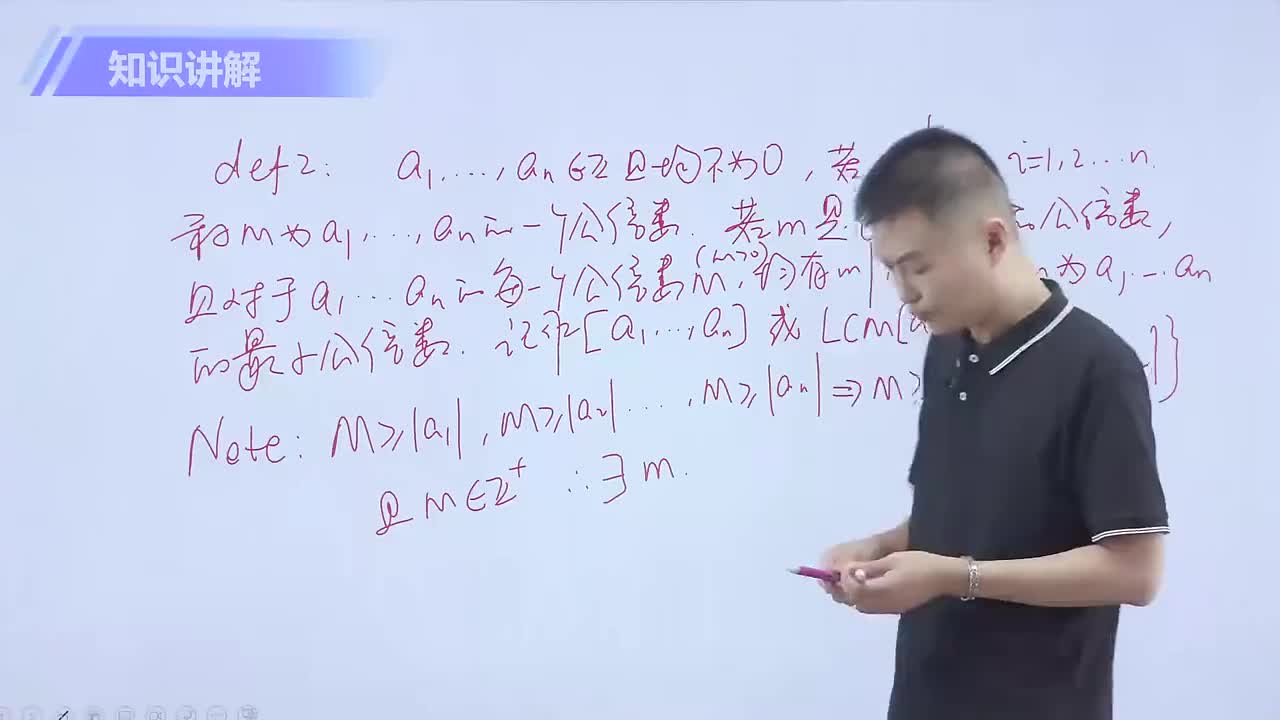 知识讲解
def2: a₁,…,aₙ∈ℤ且均不为0,若 i=1,2…n.
称M为a₁,…,aₙ的一个公倍数.若m是 公倍数,
且对于a₁…aₙ的每一个公倍数M,(m>0)均有m| 为a₁…aₙ
的最小公倍数.记作[a₁,…,aₙ]或LCM[a |}
Note: M≥|a₁|,M≥|a₂|…,M≥|aₙ|⇒M≥
且M∈ℤ⁺ ∴∃m.